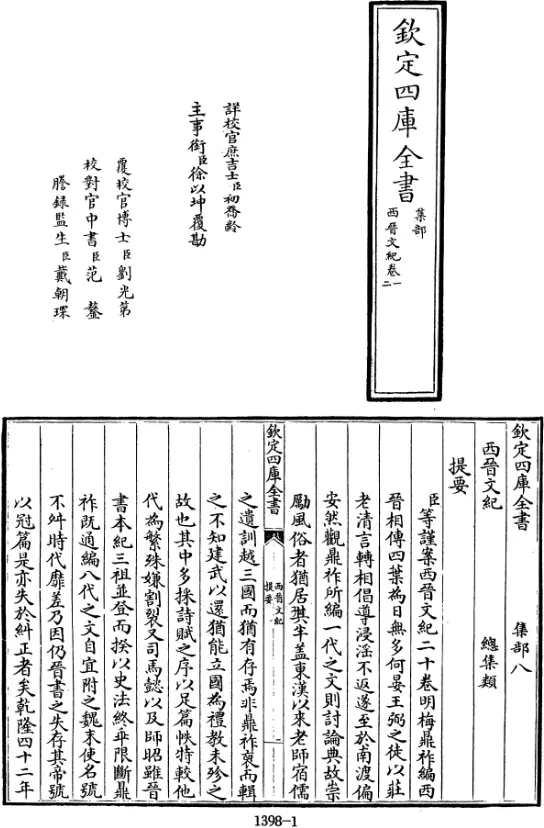 欽定四庫全書
集部
西晉文紀卷一二
詳校官庶吉士臣初喬齡
主事銜臣徐以坤覆勘
覆校官博士臣劉光第
校對官中書臣范鏊
謄錄監生臣戴朝琛
欽定四庫全書 集部八
西晉文紀 總集類
提要
臣等謹案西晉文紀二十卷明梅鼎祚編西
晉相傳四葉為日無多何晏王弼之徒以莊
老清言轉相倡導浸淫不返遂至於南渡偏
安然觀鼎祚所編一代之文則討論典故崇
勵風俗者猶居其半蓋東漢以來老師宿儒
欽定四庫全書 西晉文紀 提要 一
之遺訓越三國而猶有存焉非鼎祚裒而輯
之不知建武以還猶能立國為禮教未殄之
故也其中多採詩賦之序以足篇帙特較他
代為繁殊嫌割裂又司馬懿以及師昭雖晉
書本紀三祖並登而揆以史法終乖限斷鼎
祚既通編八代之文自宜附之魏末使名號
不舛時代靡差乃因仍晉書之失存其帝號
以冠篇是亦失於糾正者矣乾隆四十二年
1398-1